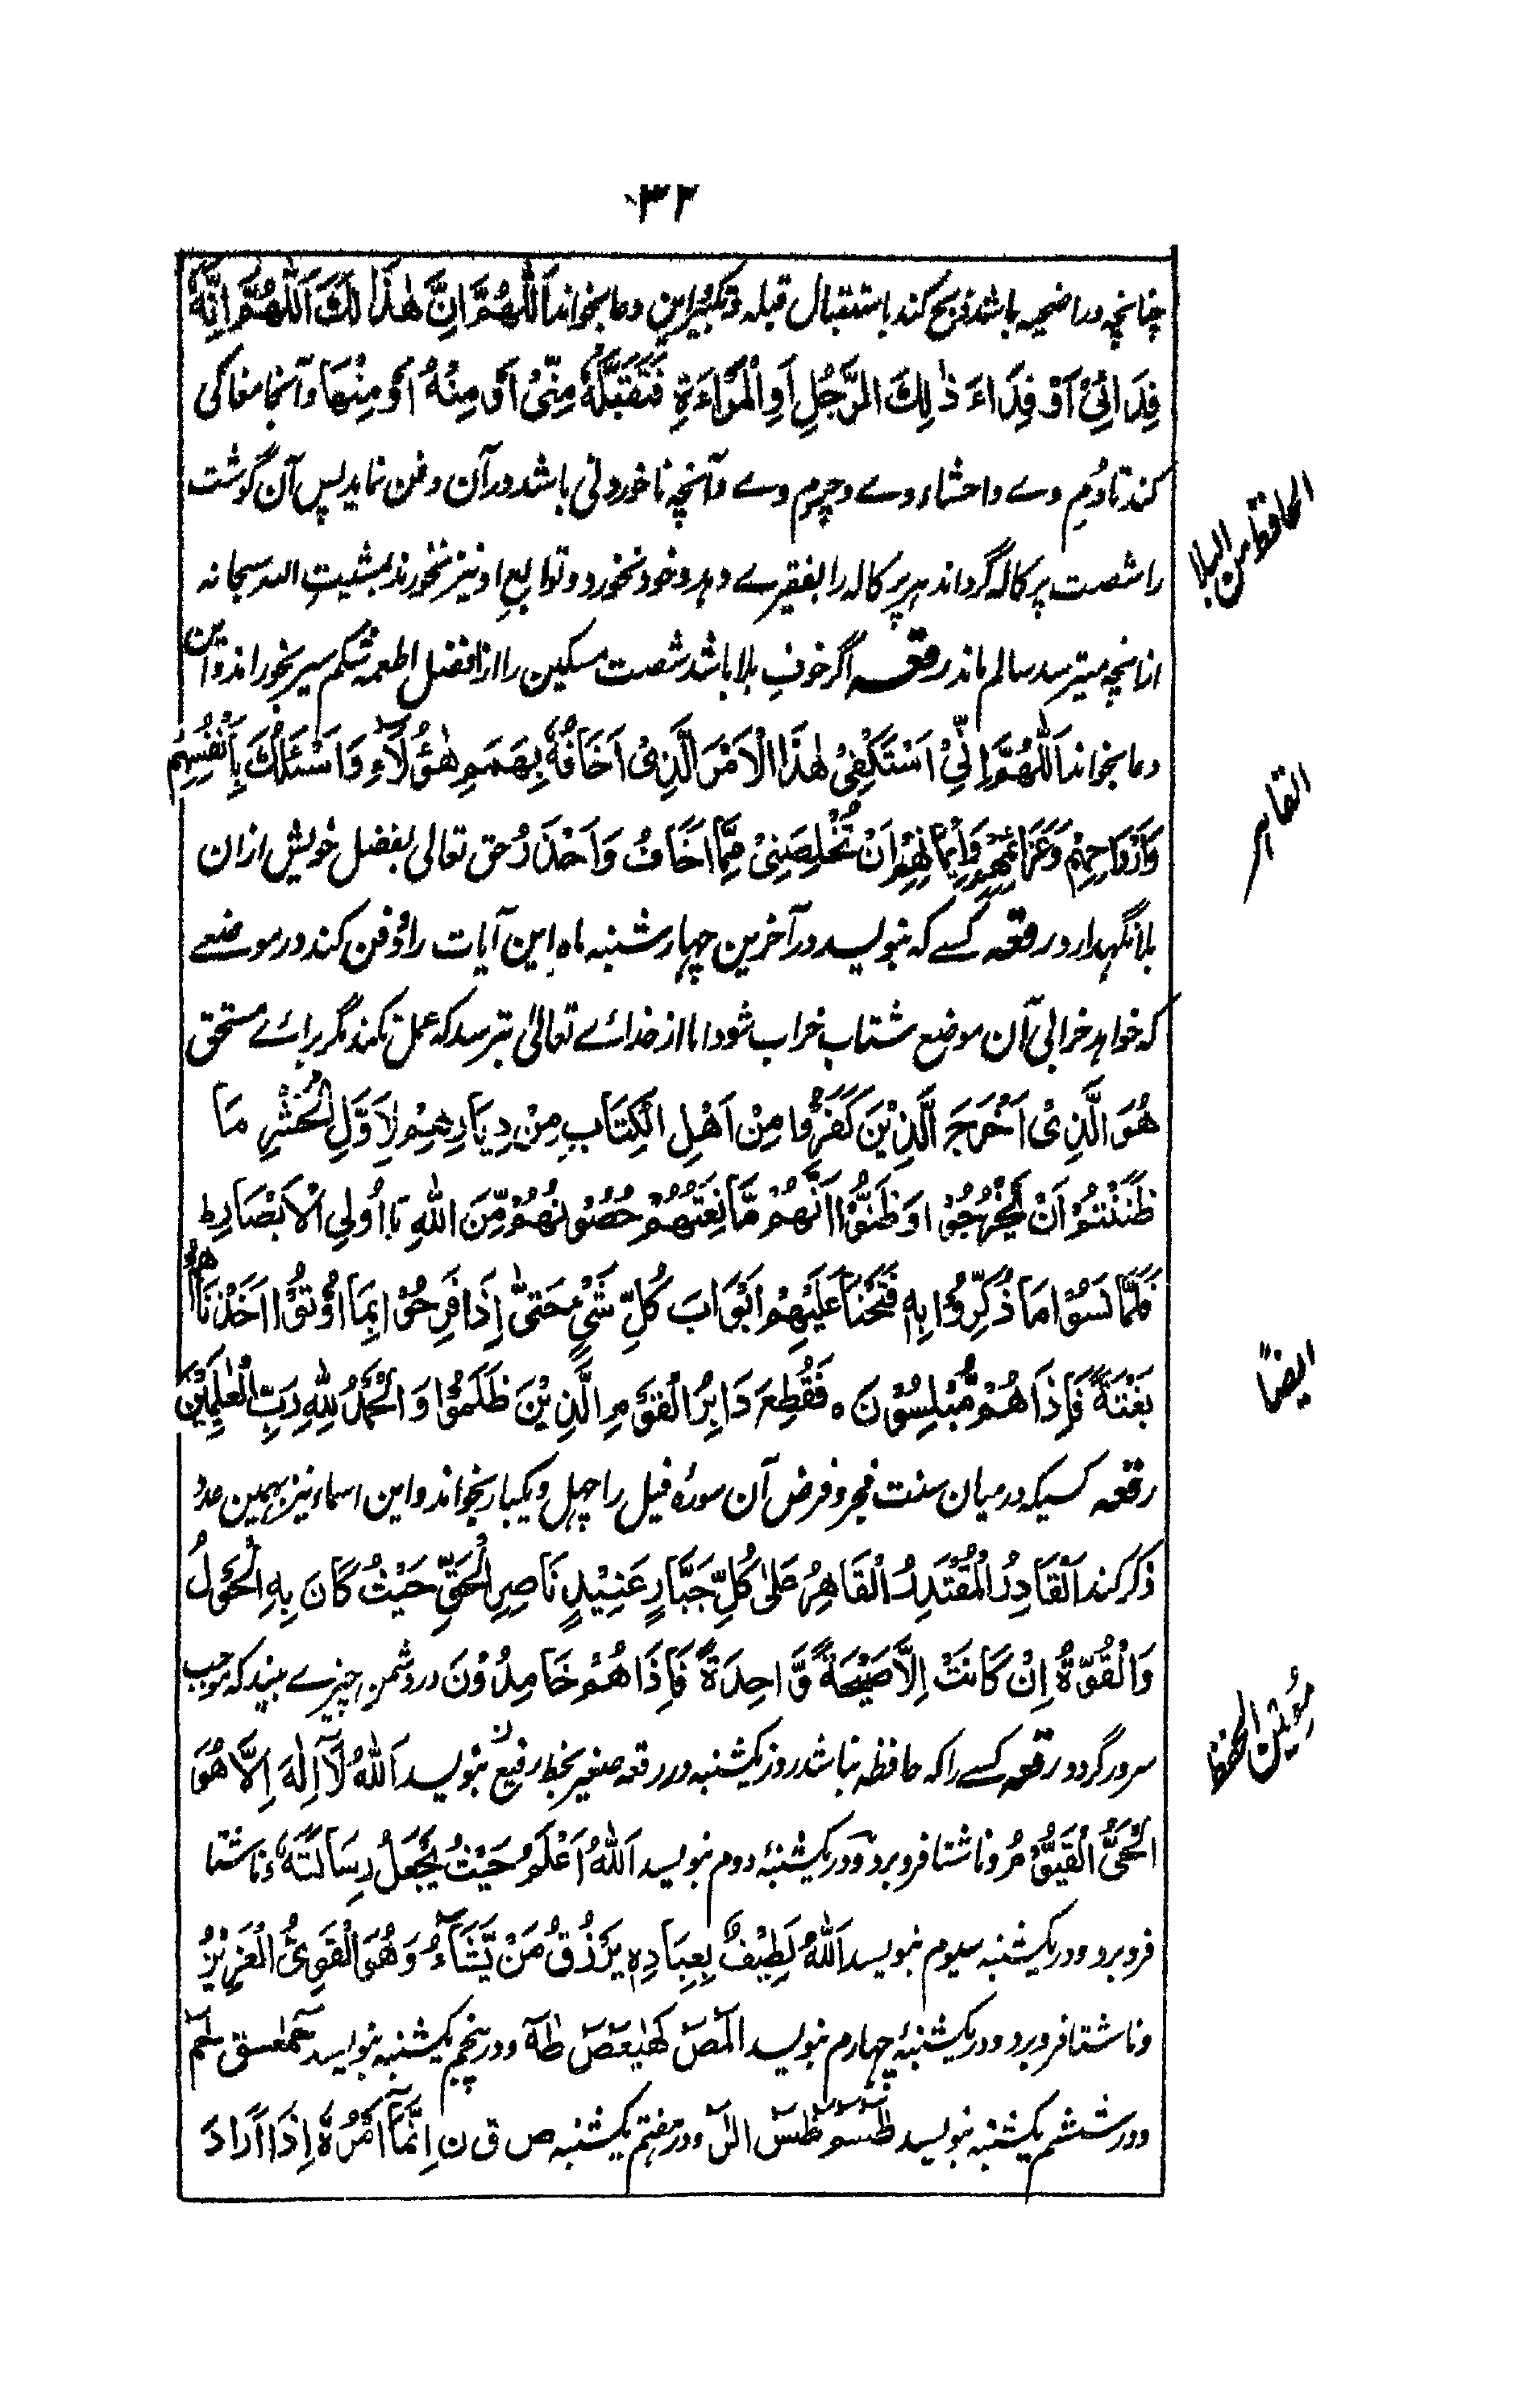 ۳۲
چنانچہ در اضحیہ باشد ذبح کند باستقبال قبلہ و تکبیر این دعا بخواند اَللّٰهُمَّ اِنَّ هٰذَا لَكَ اَللّٰهُمَّ اِنَّهٗ
فِدَائِیْ اَوْ فِدَاءَ ذٰلِكَ الرَّجُلِ اَوِ الْمَرْاَءَةِ فَتَقَبَّلْهُ مِنِّیْ اَوْ مِنْهُ اَوْ مِنْهَا و آنجا مغاکی
کند تا دُمِ وے و احشاء وے و چرم وے و آنچہ ناخوردنی باشد در آن دفن نماید پس آن گوشت
را شصت پرکالہ گرداند ہر پرکالہ را بفقیرے دہد و خود نخورد و توابع او نیز نخورند بمشیتِ اللہ سبحانہ
الحافظ من البلا
از آنچہ میترسد سالم ماند رقعہ اگر خوفِ بلا باشد شصت مسکین را از افضل اطعمہ شکم سیر بخوراند و این
دعا بخواند اَللّٰهُمَّ اِنِّیْ اَسْتَكْفِیْ هٰذَا الْاَمْرَ الَّذِیْ اَخَافُهٗ بِهَمَمِ هٰؤُلَآءِ وَاَسْئَلُكَ بِاَنْفُسِهِمْ
وَاَرْوَاحِهِمْ وَعَزَائِمِهِمْ وَاِیْمَانِهِمْ اَنْ تُخْلِصَنِیْ مِمَّا اَخَافُ وَاَحْذَرُ حق تعالی بفضل خویش از ان
القاہر
بلا نگہدارد رقعہ کسے کہ بنویسد در آخرین چہار شنبہ ماہ این آیات را و دفن کند در موضعے
کہ خواہد خرابی آن موضع شتاب خراب شود اما از خدائے تعالیٰ بترسد کہ عمل نکند مگر برائے مستحق
هُوَ الَّذِیْ اَخْرَجَ الَّذِیْنَ كَفَرُوْا مِنْ اَهْلِ الْكِتَابِ مِنْ دِیَارِهِمْ لِاَوَّلِ الْحَشْرِ مَا
ظَنَنْتُمْ اَنْ یَّخْرُجُوْا وَظَنُّوْا اَنَّهُمْ مَّانِعَتُهُمْ حُصُوْنُهُمْ مِّنَ اللّٰهِ یَا اُولِی الْاَبْصَارِ ط
فَلَمَّا نَسُوْا مَا ذُكِّرُوْا بِهٖ فَتَحْنَا عَلَیْهِمْ اَبْوَابَ كُلِّ شَیْءٍ حَتّٰی اِذَا فَرِحُوْا بِمَا اُوْتُوْا اَخَذْنَاهُمْ
بَغْتَةً فَاِذَا هُمْ مُّبْلِسُوْنَ ه فَقُطِعَ دَابِرُ الْقَوْمِ الَّذِیْنَ ظَلَمُوْا وَالْحَمْدُ لِلّٰهِ رَبِّ الْعٰلَمِیْنَ
ایضاً
رقعہ کسیکہ در میان سنت فجر و فرض آن سورۂ فیل را چہل و یکبار بخواند و این اسماء نیز بہمین عدد
ذکر کند اَلْقَادِرُ الْمُقْتَدِرُ الْقَاهِرُ عَلٰی كُلِّ جَبَّارٍ عَنِیْدٍ نَاصِرِ الْحَقِّ حَیْثُ كَانَ بِهِ الْحَوْلُ
وَالْقُوَّةُ اِنْ كَانَتْ اِلَّا صَیْحَةً وَّاحِدَةً فَاِذَا هُمْ خَامِدُوْنَ در دشمن چیزے بیند کہ موجب
سرور گردد رقعہ کسے را کہ حافظہ نباشد روز یکشنبہ در رقعہ صغیر بخط رفیع بنویسد اَللّٰهُ لَآ اِلٰهَ اِلَّا هُوَ
الْحَیُّ الْقَیُّوْمُ و ناشتا فرو برد و در یکشنبۂ دوم بنویسد اَللّٰهُ اَعْلَمُ حَیْثُ یَجْعَلُ رِسَالَتَهٗ و ناشتا
فرو برد و در یکشنبہ سیوم بنویسد اَللّٰهُ لَطِیْفٌ بِعِبَادِهٖ یَرْزُقُ مَنْ یَّشَآءُ وَهُوَ الْقَوِیُّ الْعَزِیْزُ
و ناشتا فرو برد و در یکشنبۂ چہارم بنویسد الٓمٓصٓ كٓهٰیٰعٓصٓ طٰهٰ و در پنجم یکشنبہ بنویسد حٓمٓعٓسٓقٓ حٰمٓ
و در ششم یکشنبہ بنویسد طٰسٓمٓ طٰسٓ الٓرٰ و در ہفتم یکشنبہ ص ق ن اِنَّمَآ اَمْرُهٗ اِذَا اَرَادَ